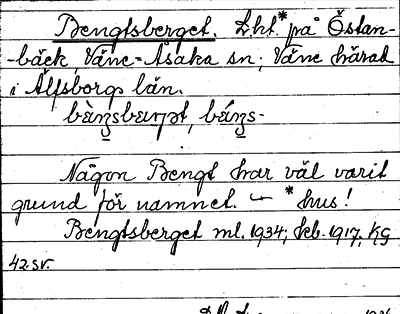 Bengtsberget. Lht.* på Östan-
-bäck Väne-Åsaka sn; Väne härad
i Älfsborgs län.
Någon Bengt har väl varit
grund för namnet. — * hus!
Bengtsberget ml. 1934; feb. 1917, KG
42 sv.